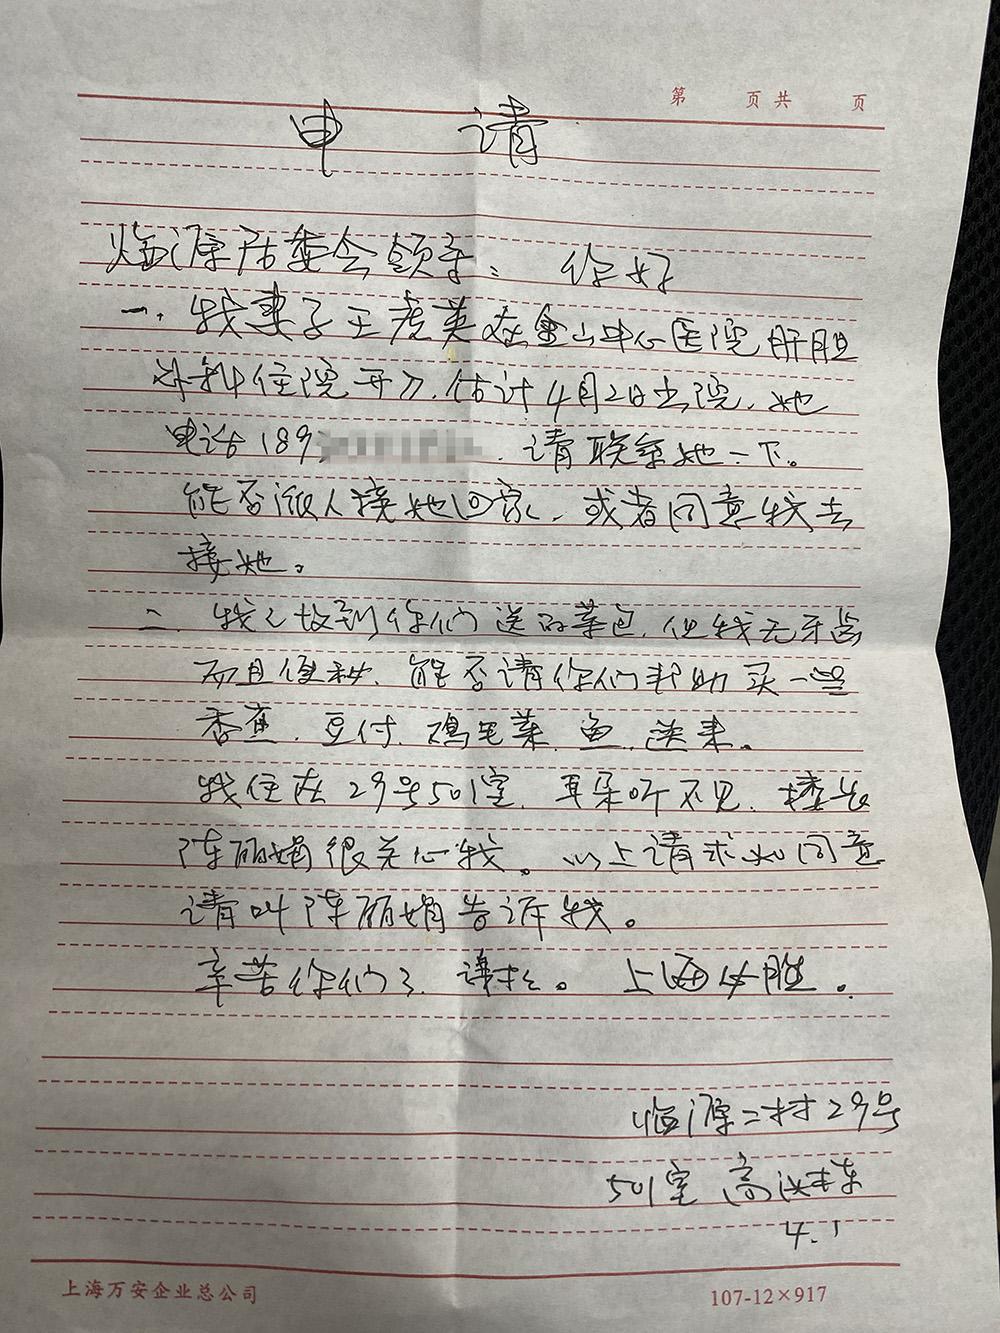 第 页共 页
申 请
临源居委会领导: 你好
一、我妻子王彦英在金山中心医院肝胆
外科住院开刀,估计4月2日出院,她
电话189 ,请联系她一下。
能否派人接她回家,或者同意我去
接她。
二、我已收到你们送的菜包,但我无牙齿
而且便秘,能否请你们帮助买一些
香蕉、豆付、鸡毛菜、鱼、送来。
我住在29号501室,耳朵听不见,楼长
陈丽娟很关心我。以上请求如同意
请叫陈丽娟告诉我。
辛苦你们了,谢谢。 上海必胜。
临源二村29号
501室 高
4.1
上海万安企业总公司 107-12×917